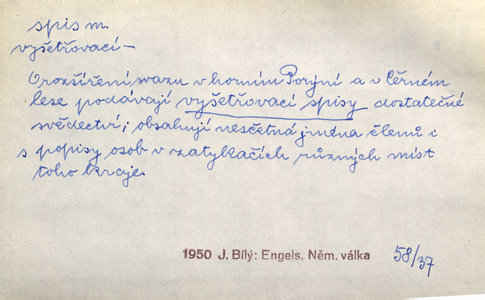 spis m.
vyšetřovací –
O rozšíření svazu v horním Porýní a v Černém
lese podávají vyšetřovací spisy dostatečné
svědectví; obsahují nesčetná jména členů i
s popisy osob v zatykačích různých míst
toho kraje.
1950 J. Bílý: Engels, Něm. válka 58/37